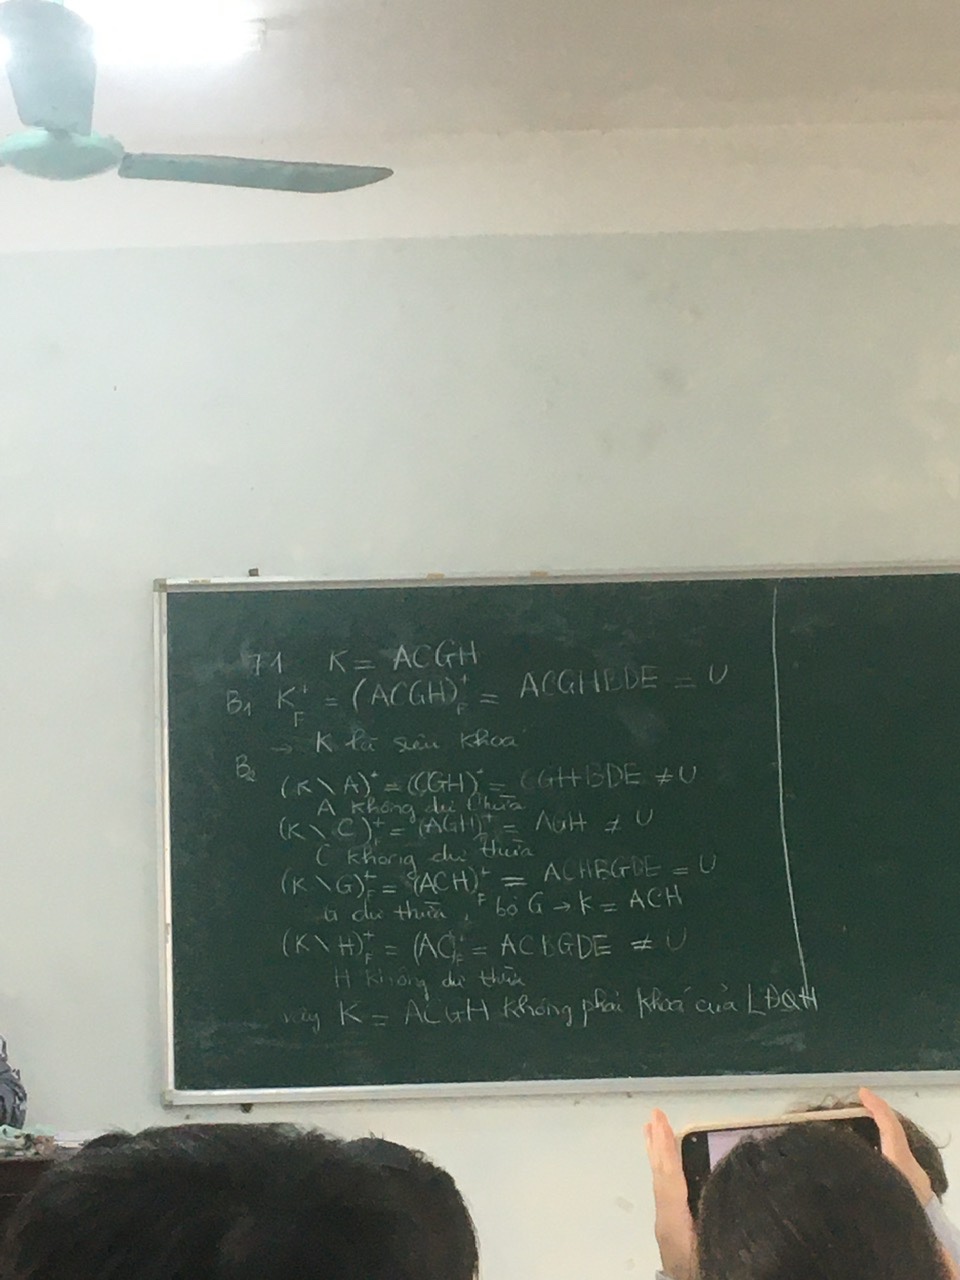 71 K = ACGH
B1 K⁺F = (ACGH)⁺F = ACGHBDE = U
→ K là siêu khoá
B2
(K \ A)⁺ = (CGH)⁺ = CGHBDE ≠ U
A không dư thừa
(K \ C)⁺F = (AGH)⁺F = AGH ≠ U
C không dư thừa
(K \ G)⁺F = (ACH)⁺F = ACHBGDE = U
G dư thừa, bỏ G → K = ACH
(K \ H)⁺F = (AC)⁺F = ACBGDE ≠ U
H không dư thừa
vậy K = ACGH không phải khoá của LĐQH